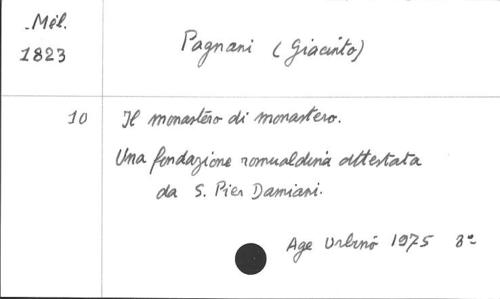 Mél.
1823
Pagnani (Giacinto)
10
Il monastero di monastero.
Una fondazione romualdina attestata
da S. Pier Damiani.
Age Urbino 1975 8°